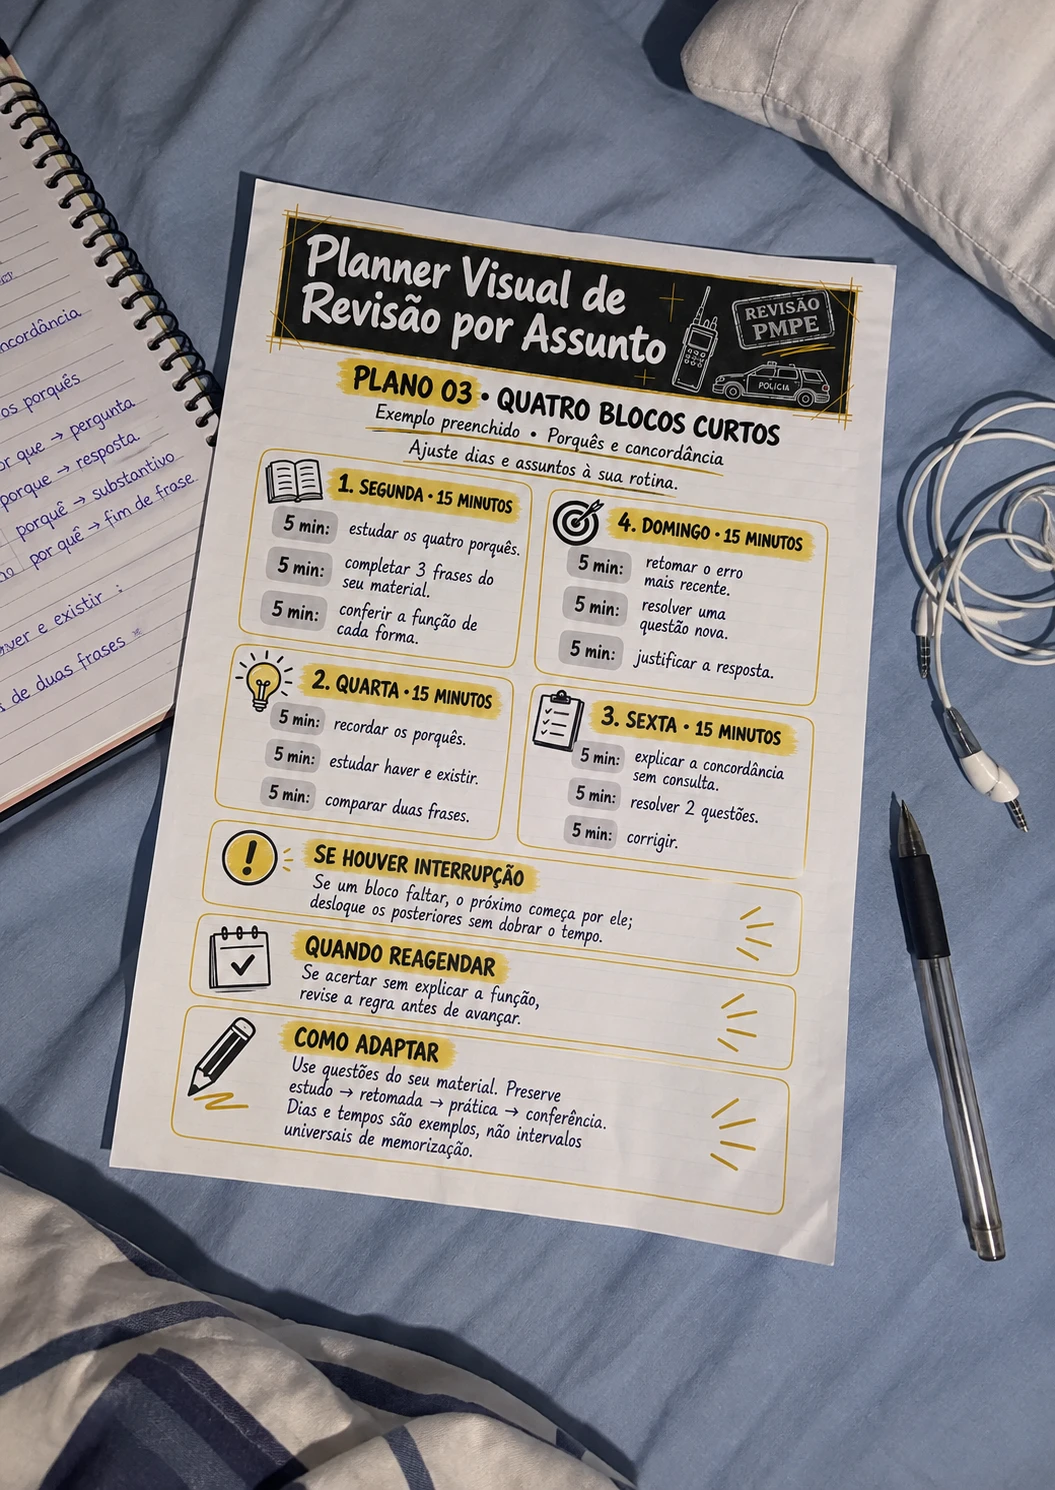 concordância
os porquês
por que → pergunta
porque → resposta.
porquê → substantivo
por quê → fim de frase.
haver e existir :
de duas frases
Planner Visual de
Revisão por Assunto
REVISÃO
PMPE
POLÍCIA
PLANO 03 • QUATRO BLOCOS CURTOS
Exemplo preenchido • Porquês e cancordância
Ajuste dias e assuntos à sua rotina.
1. SEGUNDA • 15 MINUTOS
5 min: estudar os quatro porquês.
5 min: completar 3 frases do
seu material.
5 min: conferir a função de
cada forma.
2. QUARTA • 15 MINUTOS
5 min: recordar os porquês.
5 min: estudar haver e existir.
5 min: comparar duas frases.
3. SEXTA • 15 MINUTOS
5 min: explicar a concordância
sem consulta.
5 min: resolver 2 questões.
5 min: corrigir.
4. DOMINGO • 15 MINUTOS
5 min: retomar o erro
mais recente.
5 min: resolver uma
questão nova.
5 min: justificar a resposta.
SE HOUVER INTERRUPÇÃO
Se um bloco faltar, o próximo começa por ele;
desloque os posteriores sem dobrar o tempo.
QUANDO REAGENDAR
Se acertar sem explicar a função,
revise a regra antes de avançar.
COMO ADAPTAR
Use questões do seu material. Preserve
estudo → retomada → prática → conferência.
Dias e tempos são exemplos, não intervalos
universais de memorização.